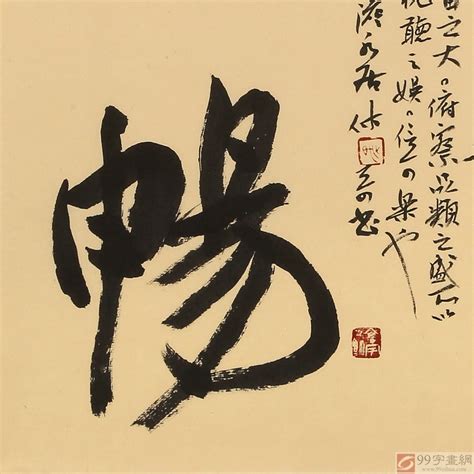 宙之大俯察品類之盛所以
視聽之娛信可樂也
永居
書
暢
99字畫網